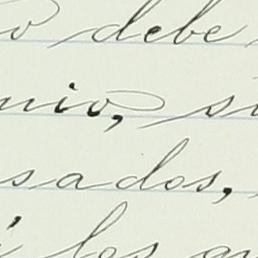 o debe
nio, si
sados,
los